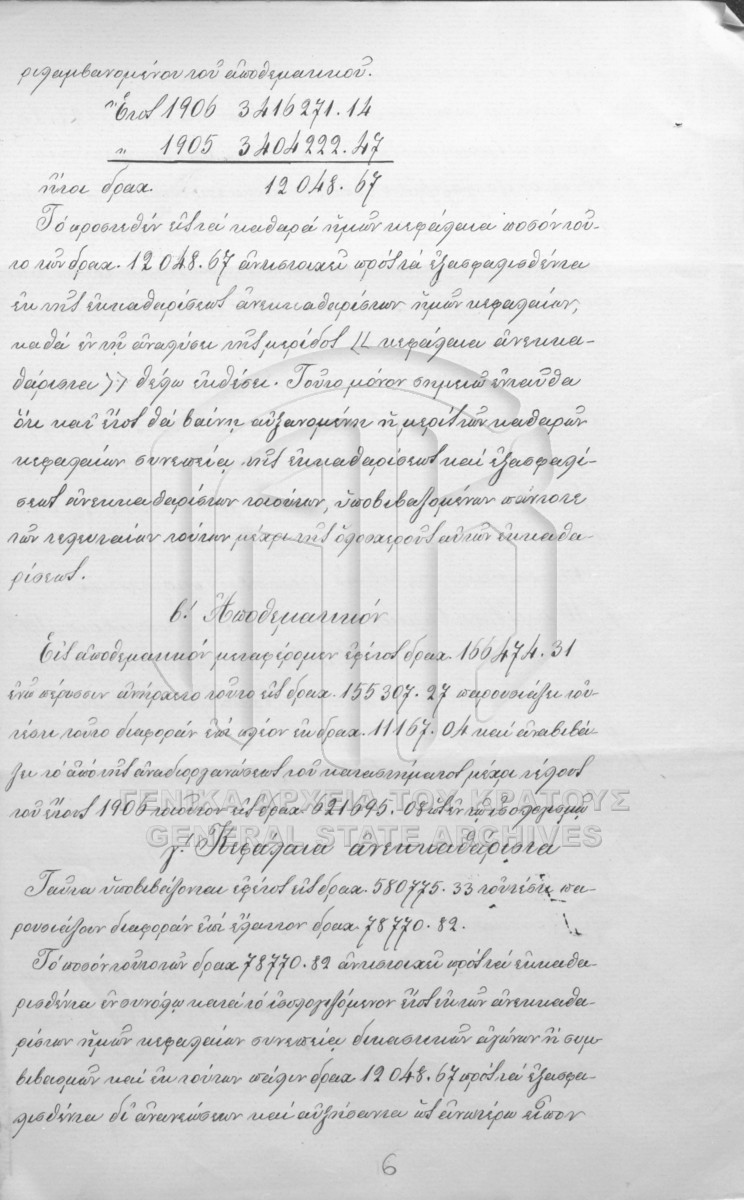 ριλαμβανομένου τοῦ ἀποθεματικοῦ.
Ἔτος 1906 3416271.14
„ 1905 3404222.47
ἤτοι δραχ. 12048.67
Τό προστεθέν εἰς τά καθαρά ἡμῶν κεφάλαια ποσόν τοῦ-
το τῶν δραχ. 12048.67 ἀντιστοιχεῖ πρός τά ἐξασφαλισθέντα
ἐκ τῆς ἐκκαθαρίσεως ἀνεκκαθαρίστων ἡμῶν κεφαλαίων,
καθά ἐν τῇ ἀναλύσει τῆς μερίδος << κεφάλαια ἀνεκκα-
θάριστα >> θέλω ἐκθέσει. Τοῦτο μόνον σημειῶ ἐνταῦθα
ὅτι κατ' ἔτος θά βαίνῃ αὐξανομένη ἡ μερίς τῶν καθαρῶν
κεφαλαίων συνεπείᾳ τῆς ἐκκαθαρίσεως καί ἐξασφαλί-
σεως ἀνεκκαθαρίστων τοιούτων, ὑποβιβαζομένων πάντοτε
τῶν τελευταίων τούτων μέχρι τῆς ὁλοσχεροῦς αὐτῶν ἐκκαθα-
ρίσεως.
β.' Ἀποθεματικόν
Εἰς ἀποθεματικόν μεταφέρομεν ἐφέτος δραχ. 166474.31
ἐνῷ πέρυσιν ἀνήρχετο τοῦτο εἰς δραχ. 155307.27 παρουσιάζει τοὐ-
τέστι τοῦτο διαφοράν ἐπί πλέον ἐκ δραχ. 11167.04 καί ἀναβιβά-
ζει τό ἀπό τῆς ἀναδιοργανώσεως τοῦ καταστήματος μέχρι τέλους
τοῦ ἔτους 1906 τοιοῦτον εἰς δραχ. 621695.08 ὡς ἐν τῷ ἰσολογισμῷ
ΓΕΝΙΚΑ ΑΡΧΕΙΑ ΤΟΥ ΚΡΑΤΟΥΣ
GENERAL STATE ARCHIVES
γ.' Κεφάλαια ἀνεκκαθάριστα
Ταῦτα ὑποβιβάζονται ἐφέτος εἰς δραχ. 580775.33 τοὐτέστι πα-
ρουσιάζουν διαφοράν ἐπί ἔλαττον δραχ. 78770.82.
Τό ποσόν τοῦτο τῶν δραχ. 78770.82 ἀντιστοιχεῖ πρός τά ἐκκαθα-
ρισθέντα ἐν συνόλῳ κατά τό ἰσολογιζόμενον ἔτος ἐκ τῶν ἀνεκκαθα-
ρίστων ἡμῶν κεφαλαίων συνεπείᾳ δικαστικῶν ἀγώνων ἤ συμ-
βιβασμῶν καί ἐκ τούτων πάλιν δραχ. 12048.67 πρός τά ἐξασφα-
λισθέντα δι' ἀνανεώσεων καί αὐξήσαντα ὡς ἀνωτέρω εἶπον
6